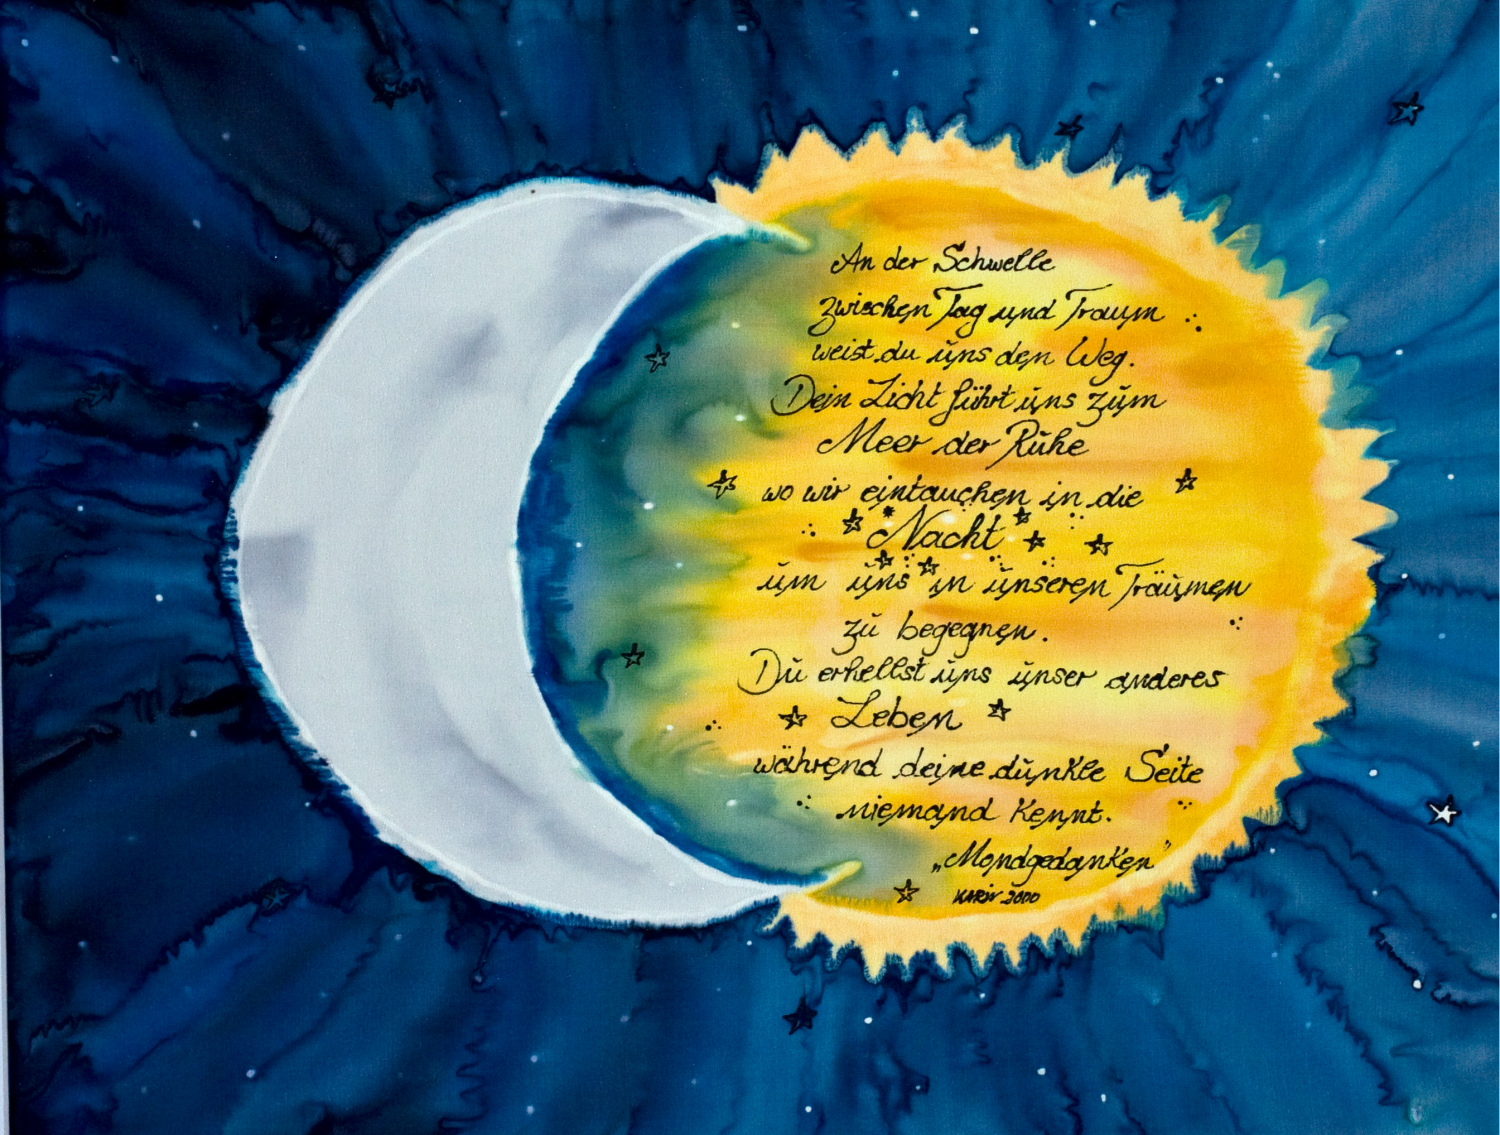 An der Schwelle
zwischen Tag und Traum
weist du uns den Weg.
Dein Licht führt uns zum
Meer der Ruhe
wo wir eintauchen in die
Nacht
um uns in unseren Träumen
zu begegnen.
Du erhellst uns unser anderes
Leben
während deine dunkle Seite
niemand kennt.
„Mondgedanken”
KARIN